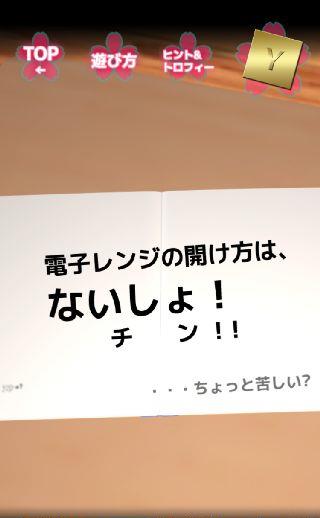 TOP
←
遊び方
ヒント&
トロフィー
Y
電子レンジの開け方は、
ないしょ！
チ　ン！！
・・・ちょっと苦しい?